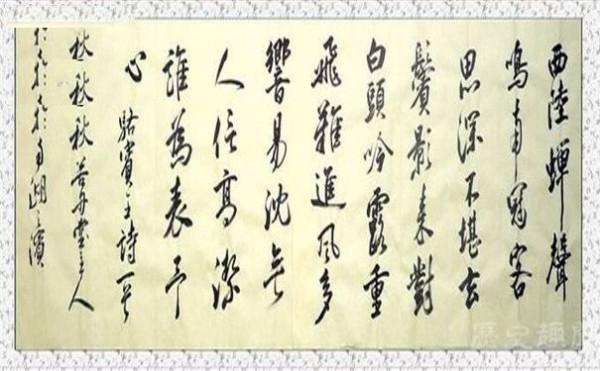 西陸蟬聲
鳴南冠客
思深不堪玄
鬢影来對
白頭吟露重
飛難進風多
響易沈無
人信高潔
誰為表予
心 駱賓王詩一首
秋秋秋主人
於南湖之濱
歷史趣